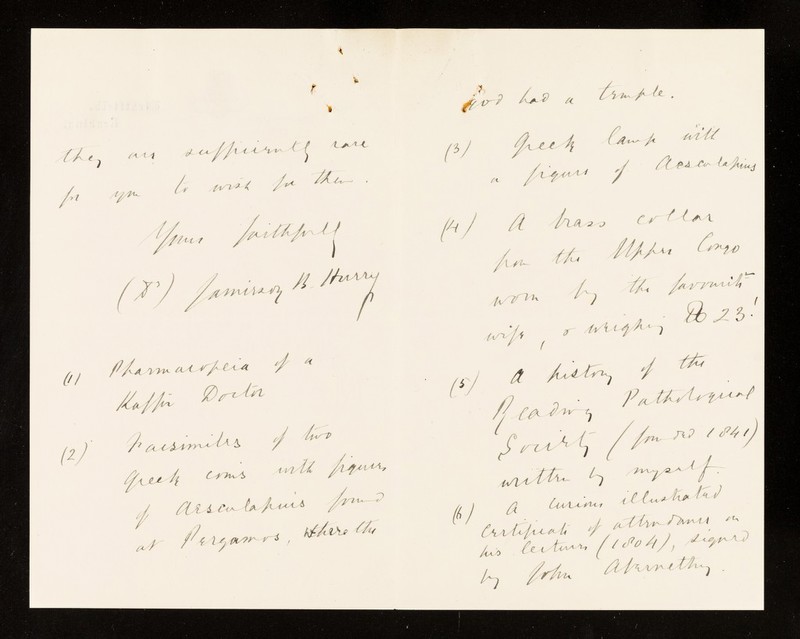 they are sufficiently rare
for you to wish for them.
Yours faithfully
(Dr) Jamieson B. Hurry
(1) Pharmacopeia of a
Kaffir Doctor
(2) Facsimiles of two
Greek coins with figures
of Aesculapius found
at Pergamos, where the
god had a temple.
(3) Greek lamp with
a figure of Aesculapius
(4) A brass collar
from the Upper Congo
worn by the favourite
wife, & weighing 23!
(5) A history of the
Reading Pathological
Society (founded 1841)
written by myself.
(6) A curious illustrated
certificate of attendance on
his lectures (1804), signed
by John Abernethy.